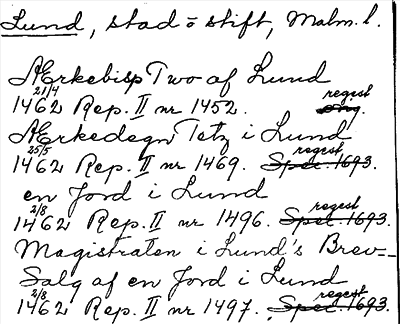 Lund, stad o stift, Malm. l.
Ærkebisp Two af Lund
21/4 regest
1462 Rep. II nr 1452. orig.
Ærkedegn Tetz i Lund
25/5 regest
1462 Rep. II nr 1469. Spec. 1693.
en Jord i Lund
2/8 regest
1462 Rep. II nr 1496. Spec. 1693.
Magistraten i Lund's Brev -
Salg af en Jord i Lund
2/8 regest
1462 Rep. II nr 1497. Spec. 1693.